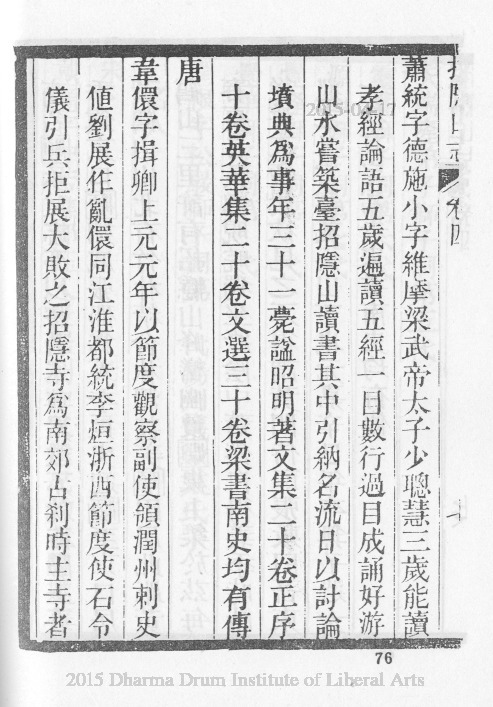 招隱山志 卷四
蕭統字德施小字維摩梁武帝太子少聰慧三歲能讀
孝經論語五歲遍讀五經一目數行過目成誦好游
山水嘗築臺招隱山讀書其中引納名流日以討論
墳典爲事年三十一薨諡昭明著文集二十卷正序
十卷英華集二十卷文選三十卷梁書南史均有傳
唐
韋儇字揖卿上元元年以節度觀察副使領潤州刺史
値劉展作亂儇同江淮都統李烜浙西節度使石令
儀引兵拒展大敗之招隱寺爲南郊古刹時主寺者
76
2015 Dharma Drum Institute of Liberal Arts